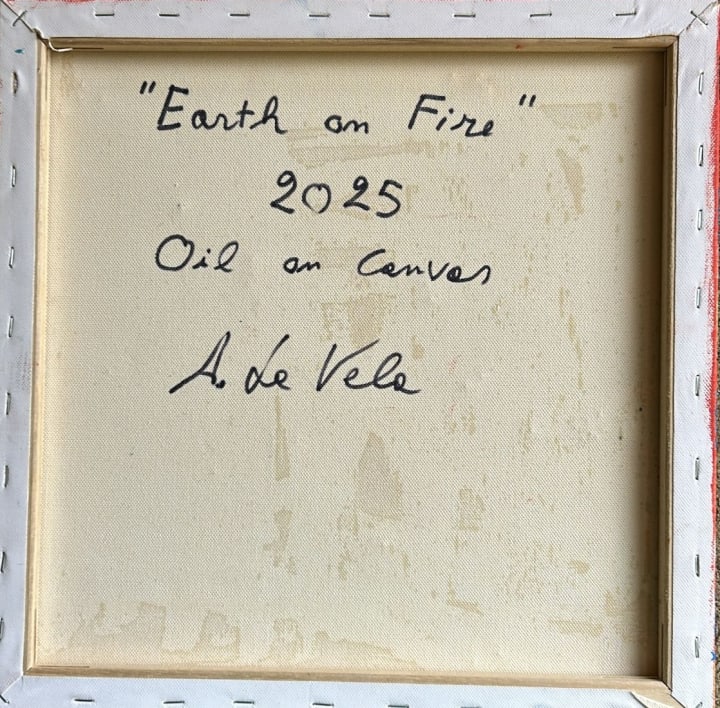 "Earth on Fire"
2025
Oil on Canvas
A. La Vela